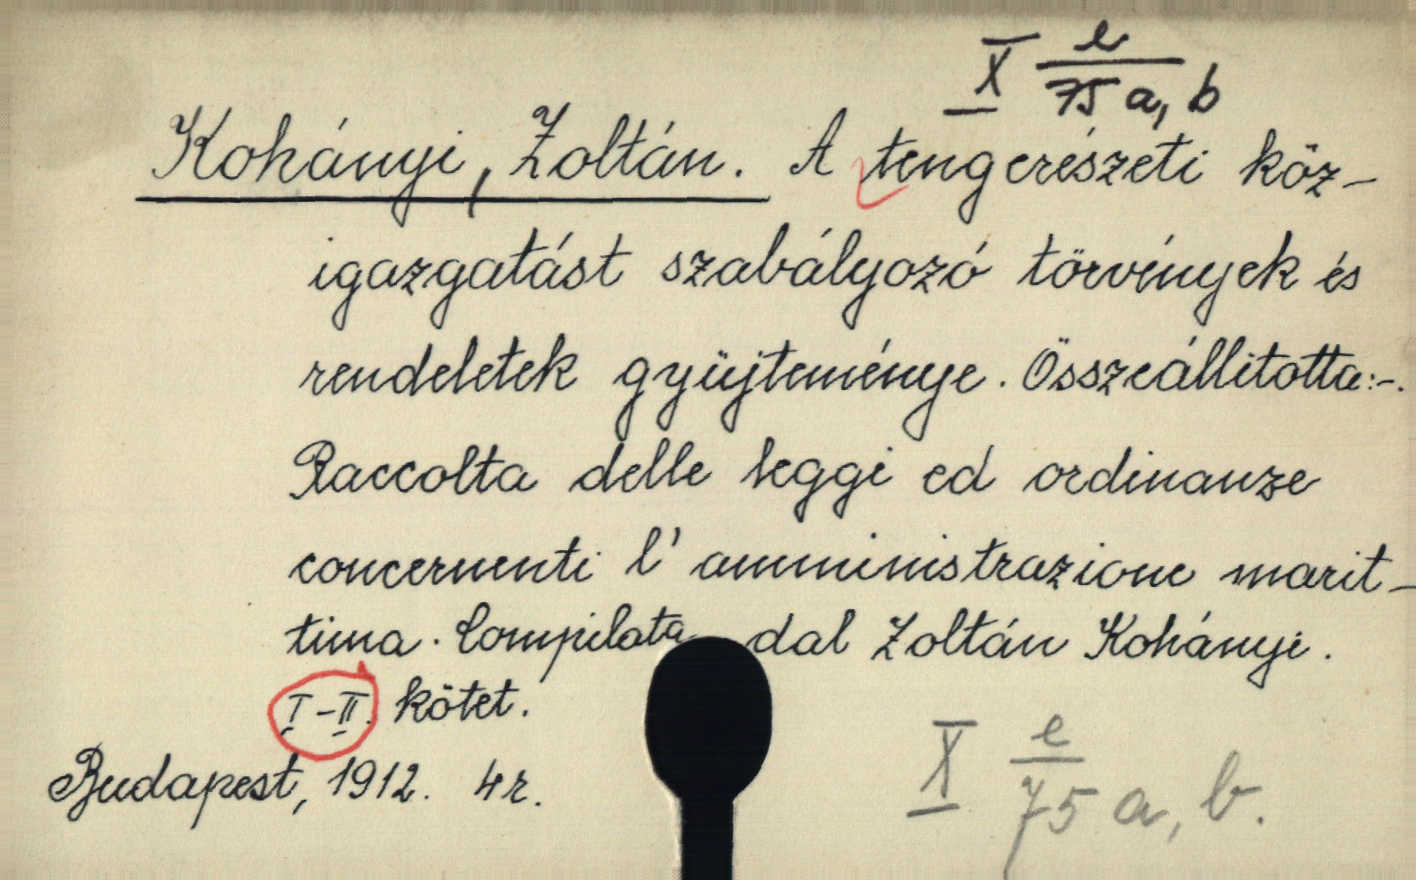 X e/75 a, b
Kohányi, Zoltán. A tengerészeti köz-
igazgatást szabályozó törvények és
rendeletek gyüjteménye. Összeállitotta:-.
Raccolta delle leggi ed ordinanze
concernenti l'amministrazione marit-
tima. Compilata dal Zoltán Kohányi.
I-II. kötet.
Budapest, 1912. 4r.
X e/75 a, b.